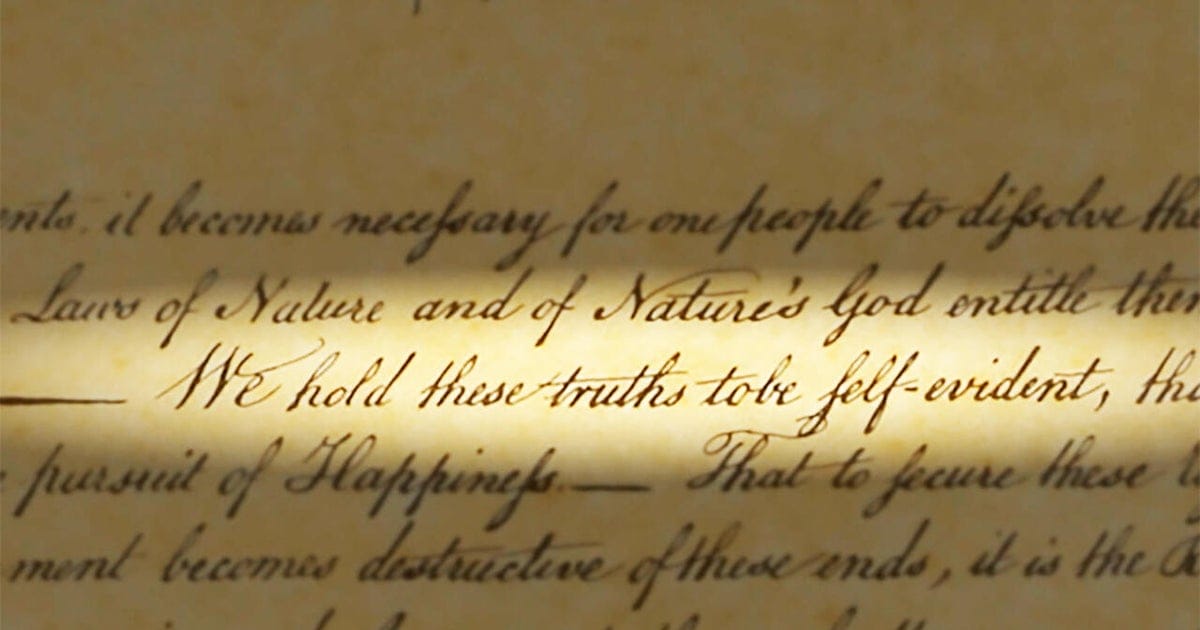 ents, it becomes neceſsary for one people to diſsolve the
Laws of Nature and of Nature's God entitle them
We hold these truths to be ſelf-evident, tha
pursuit of Happineſs. — That to ſecure these
ment becomes destructive of these ends, it is the R